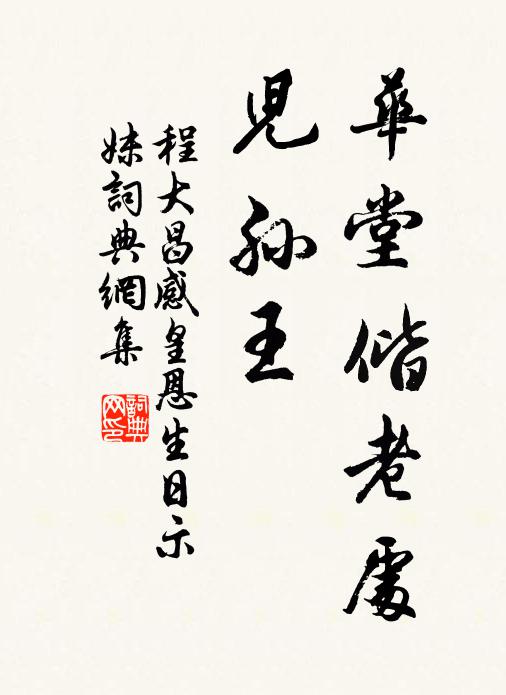 華堂偕老處
児孫王
程大昌感皇恩生日示
妹詞典網集
詞典
网印